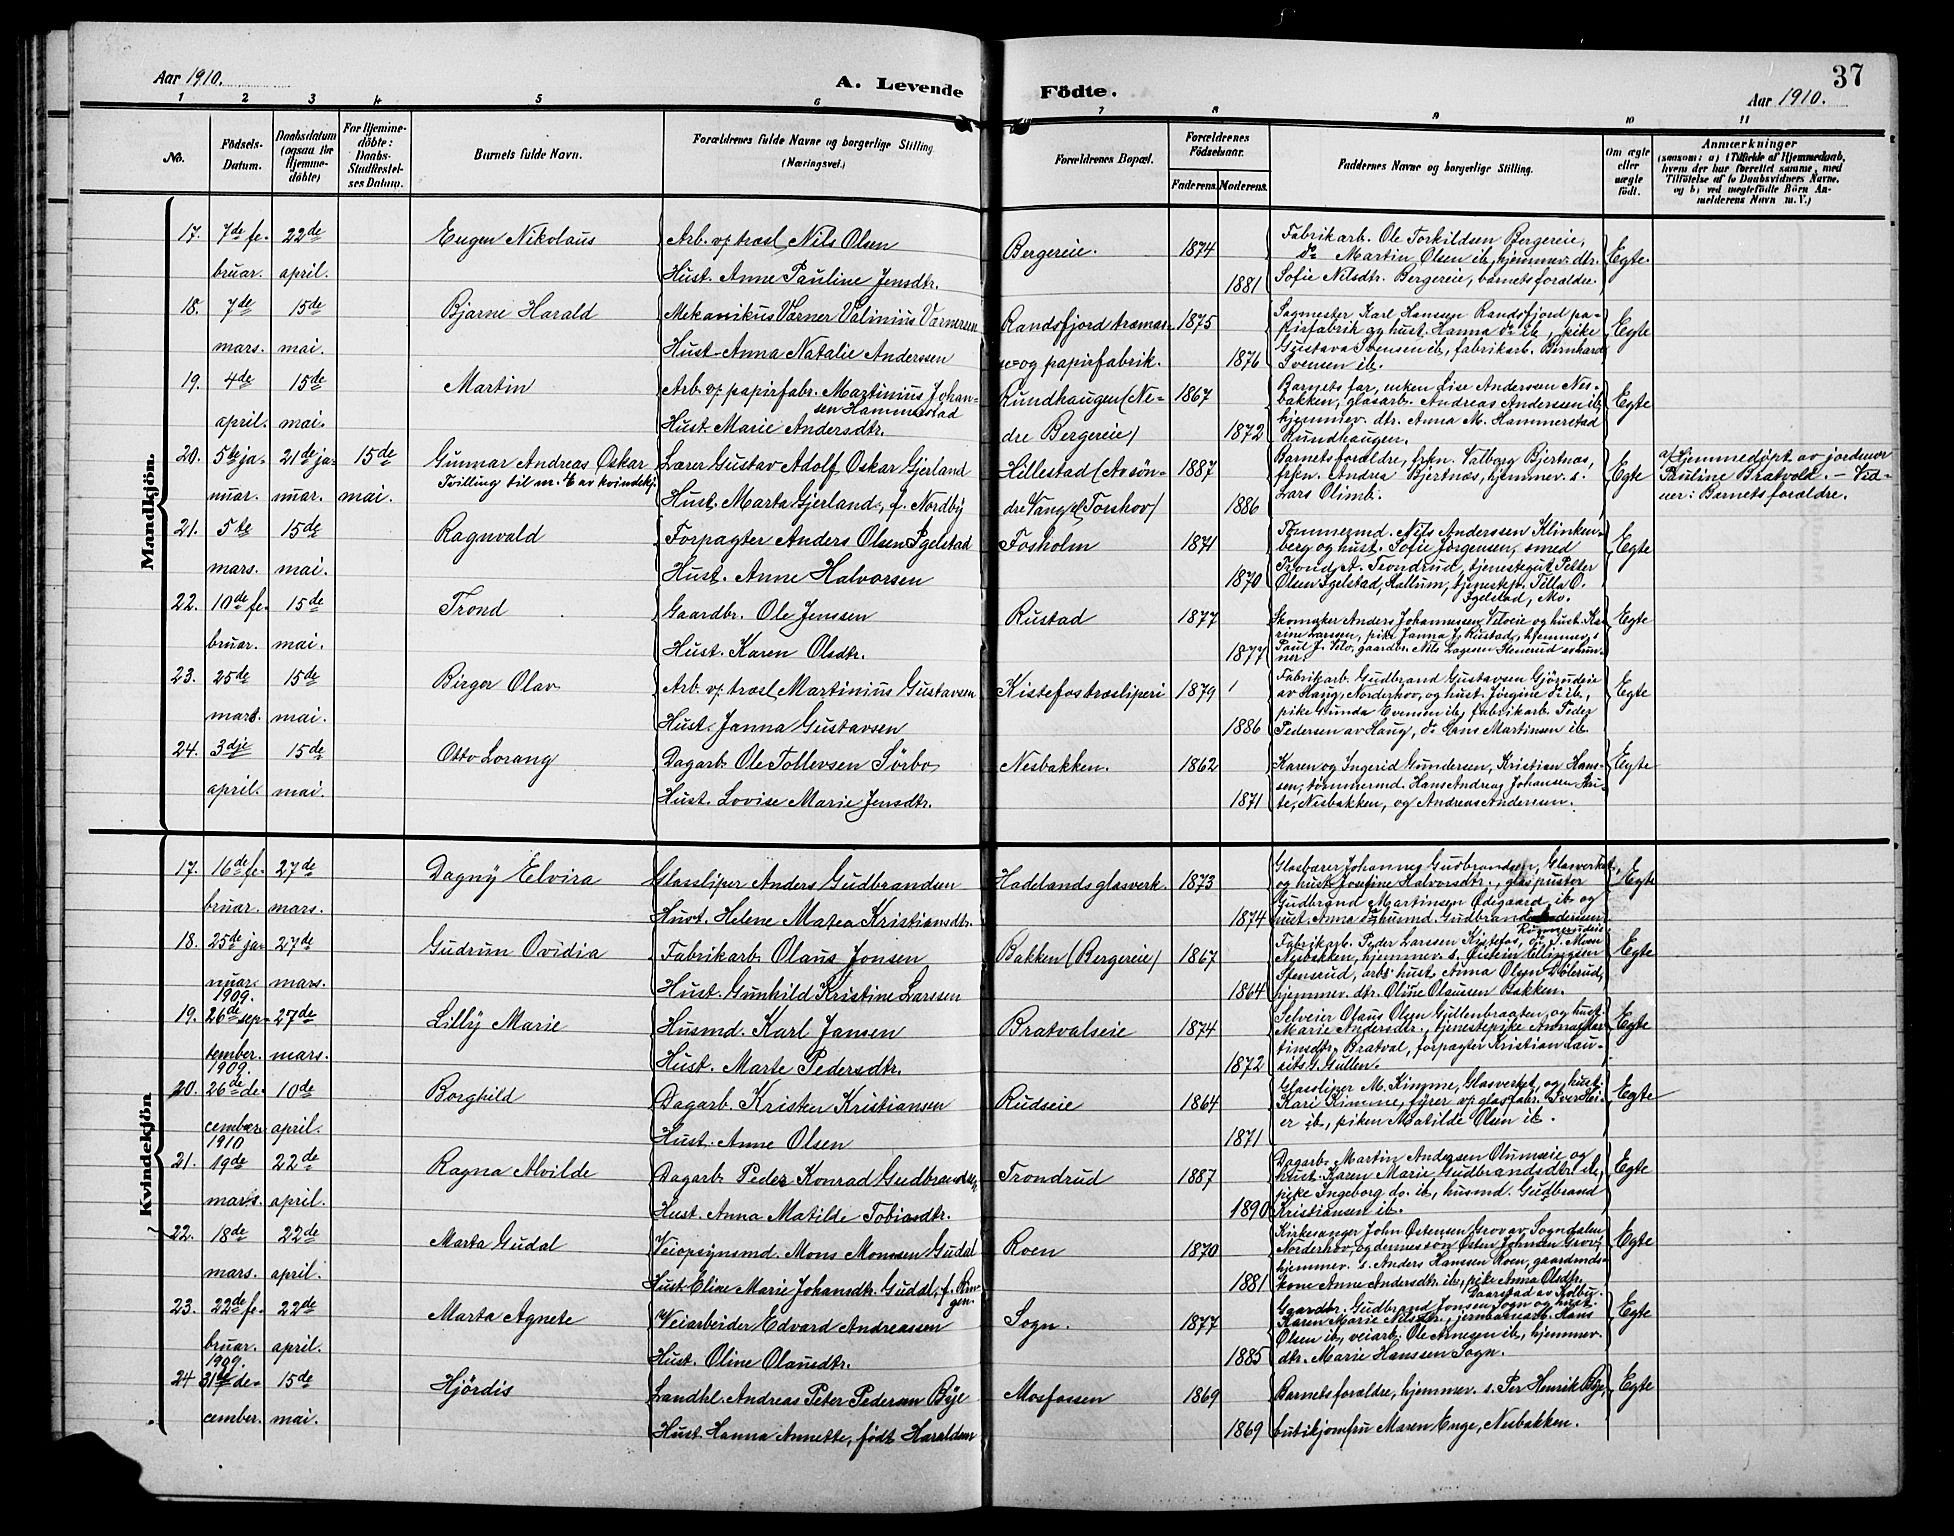 Aar 1910.
A. Levende
Födte.
37
Aar 1910.
1 2 3 4 5 6 7 8 9 10 11
No.
Födsels-
Datum.
Daabsdatum
(ogsaa for
Hjemme-
döbte)
For Hjemme-
döbte:
Daabs-
Stadfæstel-
ses Datum.
Barnets fulde Navn.
Forældrenes fulde Navne og borgerlige Stilling.
(Næringsvei.)
Forældrenes Bopæl.
Forældrenes
Födselsaar.
Faderens. Moderens.
Faddernes Navne og borgerlige Stilling.
Om ægte
eller
uægte
födt.
Anmærkninger
(saasom: a) i Tilfælde af Hjemmedaab,
hvem der har forrettet samme, med
Tilföielse af to Daabsvidners Navne.
og b) ved uægtefödte Börn An-
melderens Navn m. V.)
Mandkjön.
17. 7de fe- 22de Eugen Nikolaus Arb. v. træsl. Nils Olsen Bergereie. 1874 Fabrikarb. Ole Torkildsen Bergereie, Egte.
do Martin Olsen ib., hjemmev. dtr.
bruar. april. Hust. Anne Pauline Jensdtr. 1881 Sofie Nilsdtr. Bergereie, barnets forældre.
18. 7de 15de Bjarne Harald Mekanikus Varner Valinius Varnersen Randsfjord træmas- 1875 Sagmester Karl Hanssen Randsfjord pa- Egte
pirfabrik og hust. Hanna do ib., pike
mars. mai. Hust. Anna Natalie Anderssen se- og papirfabrik. 1876 Gustava Svensen ib., fabrikarb. Bernhard
Svensen ib.
19. 4de 15de Martin Arb. v. papirfabr. Martinius Johan- Rundhaugen (Ne- 1867 Barnets far, enken Lise Anderssen Nes- Egte
sen Hammerstad bakken, glasarb. Andreas Andersen ib.,
april. mai. Hust. Marie Andersdtr. dre Bergereie) 1872 hjemmev. dtr. Anna M. Hammerstad
Rundhaugen.
20. 5te ja- 21de ja- 15de Gunnar Andreas Oskar Lærer Gustav Adolf Oskar Gjerland Hillestad (Avsön- 1887 Barnets forældre, frkn. Valborg Bjertnæs, Egte a) Hjemmedöpt av jordmor
Tvilling til nr. 6 av kvindekj. frkn. Andrea Bjertnæs, hjemmev. s. Pauline Bratvold. – Vid-
nuar. nuar. mai. Hust. Marta Gjerland, f. Nordby dre Vang af Torshov) 1886 Lars Olimb. ner: Barnets forældre.
21. 5te 15de Ragnvald Forpagter Anders Olsen Igelstad Fosholm 1871 Tömmermd. Nils Anderssen Klinken- Egte
berg og hust. Sofie Jörgensen, smed
mars. mai. Hust. Anne Halvorsen 1870 Trond A. Trondrud, tjenestegut Petter
Olsen Igelstad, Hallum, tjenestep. Tilla O.
Igelstad, Mo.
22. 10de fe- 15de Trond Gaardbr. Ole Jenssen Rustad 1877 Skomaker Anders Johannessen Veloeie og hust. Ka- Egte
rine Larssen, pike Janna J. Rustad, hjemmev. s.
bruar. mai. Hust. Karen Olsdtr. 1877 Paul J. Velo, gaardbr. Nils
23. 25de 15de Birger Olav Arb. v. træsl. Martinius Gustavsen Kistefos træsliperi 1879 Fabrikarb. Gudbrand Gustavsen Gjörudeie Egte
av Haug, Norderhov, og hust. Jörgine do ib.,
mars. mai. Hust. Janna Gustavsen 1886 pike Gunda Evensen ib., fabrikarb. Peder
Pedersen av Haug, do Hans Martinsen ib.
24. 3dje 15de Otto Lorang Dagarb. Ole Tollevsen Sörbo Nesbakken. 1862 Karen og Ingerid Gundersen, Kristian Han- Egte
sen, tömmermd. Hans Andreas Johansen
april. mai. Hust. Lovise Marie Jensdtr. 1871 Nesbakken, og Andreas Andersen.
Kvindekjön
17. 16de fe- 27de Dagny Elvira Glassliper Anders Gudbrandsen Hadelands glasverk. 1873 Glasbærer Johannes Gudbrandsen, Glasverket, Egte
og hust. Josefine Halvorsdtr., glaspuster
bruar. mars. Hust. Helene Matea Kristiansdtr. 1874 Gudbrand Martinsen Ödegaard ib. og
hust. Anna
18. 25de ja- 27de Gudrun Ovidia Fabrikarb. Olaus Jonsen Bakken (Bergereie) 1867 Fabrikarb. Peder Larssen Kistefos, Egte
Nesbakken, hjemmev. s. Öistein Ellingsen
nuar. mars. Hust. Gunhild Kristine Larssen 1864 Stensrud, arb. hust. Anna Olsen
hjemmev. dtr. Oline Olausen Bakken.
1909.
19. 26de sep- 27de Lilly Marie Husmd. Karl Jansen Bratvalseie 1874 Selveier Olaus Olsen Gullenbraaten, og hust. Egte
Marie Andersdtr., tjenestepike Anna Mar-
tember. mars. Hust. Marte Pedersdtr. 1872 tinsdtr. Bratval, forpagter Kristian Lau-
rits G. Gullen.
1909.
20. 26de de- 10de Borghild Dagarb. Kristen Kristiansen Rudseie 1864 Glassliper M. Kimme, Glasverket, og hust. Egte
Kari Kimme, fyrer v. glasfabr. Iver Hei-
cember april. Hust. Anne Olsen 1871 er ib., piken Matilde Olsen ib.
1910
21. 19de 22de Ragna Alvilde Dagarb. Peder Konrad Gudbrandsen Trondrud 1887 Dagarb. Martin Andersen Olumseie og Egte
hust. Karen Marie Gudbrandsdtr. ib.,
mars. april. Hust. Anna Matilde Tobiasdtr. 1890 pike Ingeborg do. ib., husmd. Gudbrand
Kristiansen ib.
22. 18de 22de Marta Gudal Veiopsynsmd. Mons Monsen Gudal Roen 1870 Kirkesanger John Östensen Grov av Sogndalen Egte
Norderhov, og dennes sön Östen Johnsen Grov,
mars. april. Hust. Eline Marie Johansdtr. Gudal, f. Rin- 1881 hjemmev. s. Anders Hanssen Roen, gaardmds-
gen. kone Anne Andersdtr. ib., pike Anna Olsdtr.
Daarstad av Kolbu.
23. 22de fe- 22de Marta Agnete Veiarbeider Edvard Andreassen Sogn. 1877 Gaardbr. Gudbrand Jonsen Sogn og hust. Egte
Karen Marie Nilsdtr., jernbanearb. Hans
bruar. april. Hust. Oline Olausdtr. 1885 Olsen ib., veiarb. Ole Arnesen ib., hjemmev.
dtr. Marie Hanssen Sogn.
1909.
24 31te de- 15de Hjördis Landhl. Andreas Peter Pedersen Bye Mosfossen 1869 Barnets forældre, hjemmev. s. Per Henrik Bye, Egte
cember. mai. Hust. Hanna Annette, födt Haraldsen 1869 butikjomfru Maren Enge, Nesbakken.